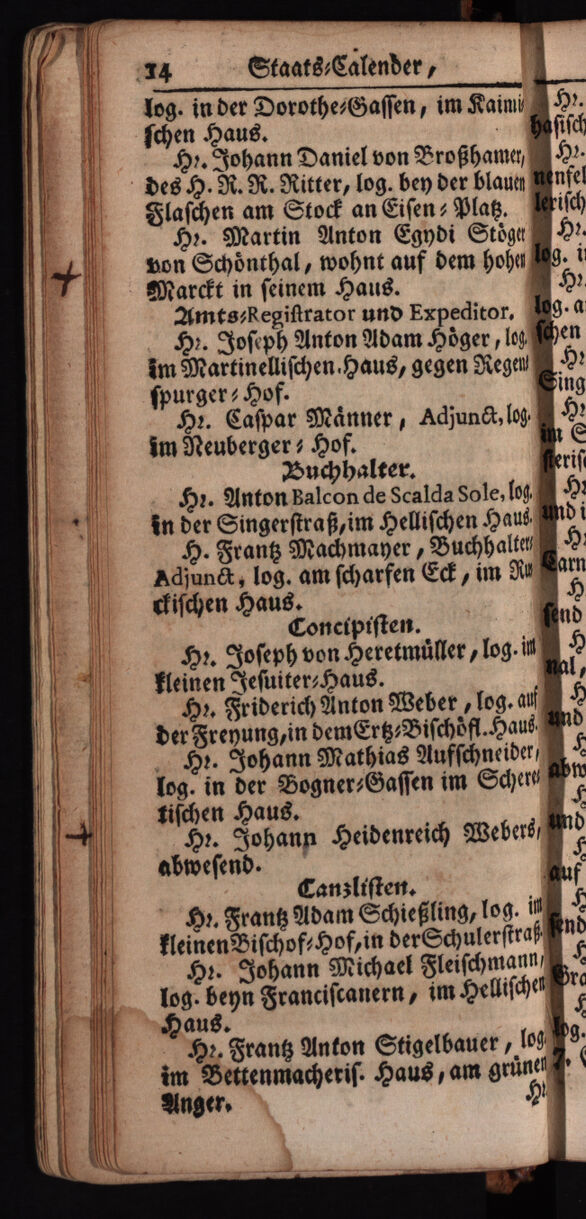 14 Staats-Calender,
log. in der Dorothe-Gassen, im Kaimi
schen Haus.
Hr. Johann Daniel von Broßhamer,
des H. R. R. Ritter, log. bey der blauen
Flaschen am Stock an Eisen-Platz.
Hr. Martin Anton Egydi Stöger
von Schönthal, wohnt auf dem hohen
Marckt in seinem Haus.
Amts-Registrator und Expeditor.
Hr. Joseph Anton Adam Höger, log.
im Martinellischen Haus, gegen Regen-
spurger-Hof.
Hr. Caspar Männer, Adjunct, log.
im Neuberger-Hof.
Buchhalter.
Hr. Anton Balcon de Scalda Sole, log.
in der Singerstraß, im Hellischen Haus.
H. Frantz Machmayer, Buchhalter-
Adjunct, log. am scharfen Eck, im Ru-
ckischen Haus.
Concipisten.
Hr. Joseph von Heretmüller, log. im
kleinen Jesuiter-Haus.
Hr. Friderich Anton Weber, log. auf
der Freyung, in dem Ertz-Bischöfl. Haus.
Hr. Johann Mathias Aufschneider,
log. in der Bogner-Gassen im Schere-
tischen Haus.
Hr. Johann Heidenreich Webers,
abwesend.
Canzlisten.
Hr. Frantz Adam Schießling, log. im
kleinen Bischof-Hof, in der Schulerstraß.
Hr. Johann Michael Fleischmann,
log. beyn Franciscanern, im Hellischen
Haus.
Hr. Frantz Anton Stigelbauer, log.
im Bettenmacheris. Haus, am grünen
Anger.
Hr.